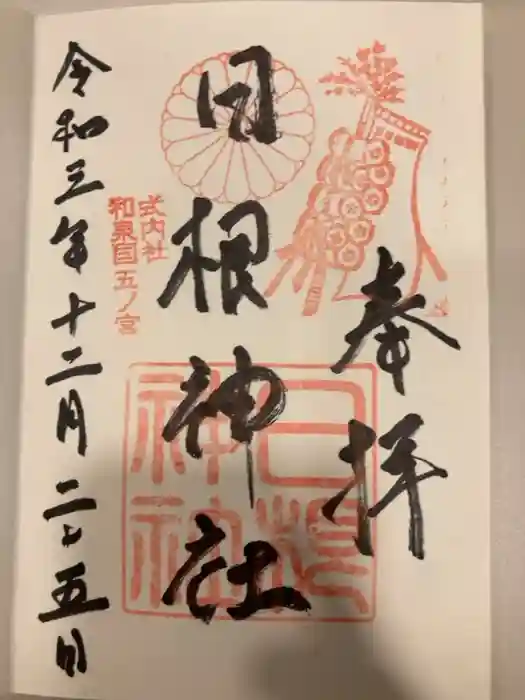 奉拝
日根神社
式内社
和泉国五ノ宮
日根神社
令和三年十二月二十五日